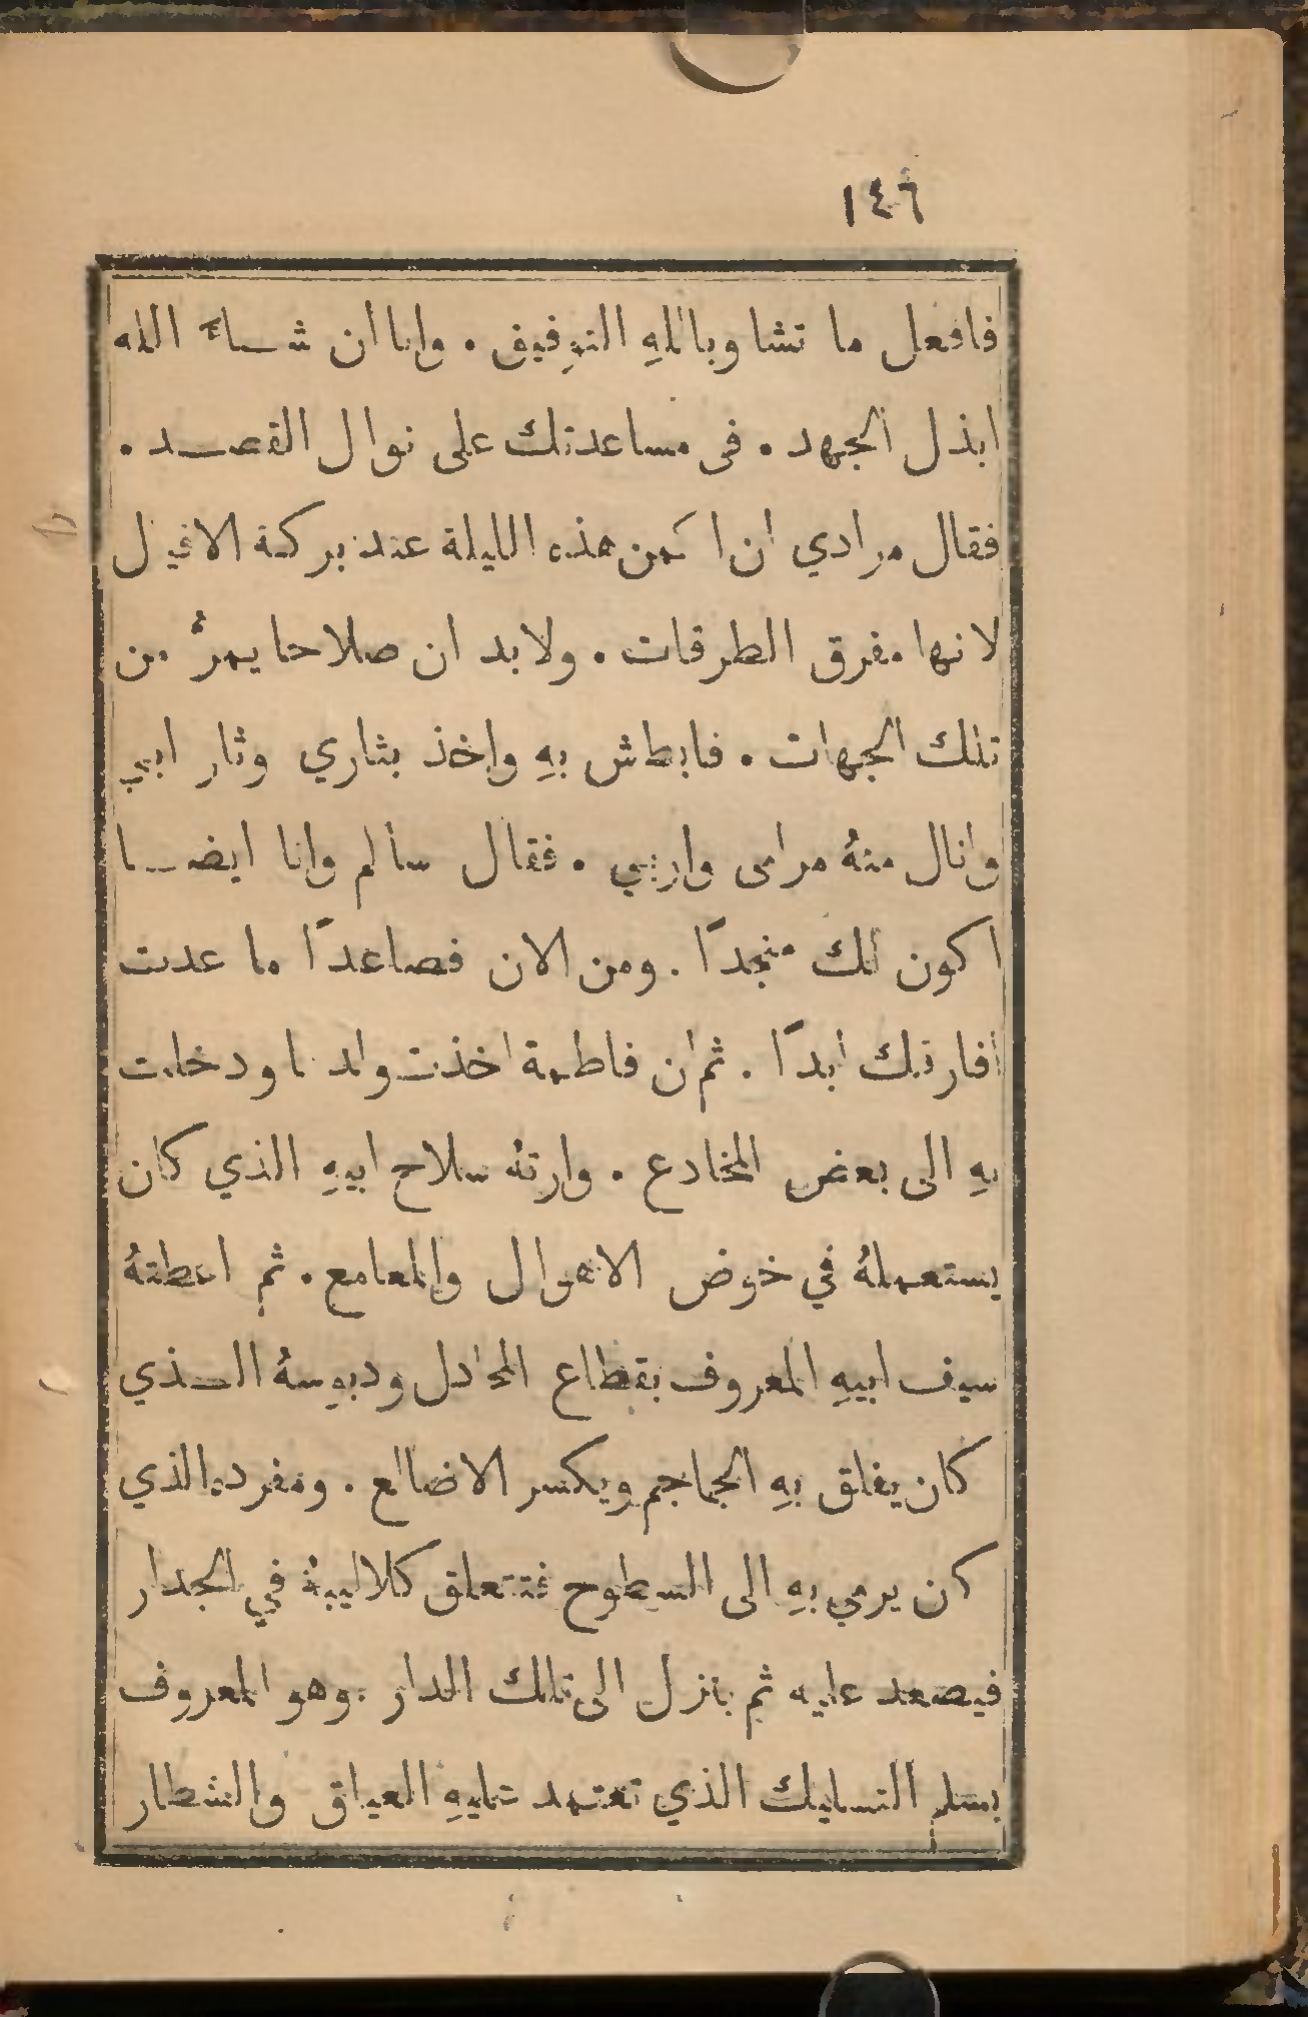 ١٤٦
فافعل ما تشا وباللهِ التوفيق . وانا ان شاءَ الله
ابذل الجهد . فى مساعدتك على نوال القصد .
فقال مرادي ان اكمن هذه الليلة عند بركة الافيل
لانها مفرق الطرقات . ولابد ان صلاحا يمرُّ من
تلك الجهات . فابطش بهِ واخذ بثاري وثار ابي
وانال منهُ مرامى واربي . فقال سالم وانا ايضا
اكون لك منجدًا . ومن الان فصاعدًا ما عدت
افارقك ابدًا . ثم ان فاطمة اخذت ولدها ودخلت
بهِ الى بعض المخادع . وارتهُ سلاح ابيهِ الذي كان
يستعملهُ في خوض الاهوال والمعامع . ثم اعطتهُ
سيف ابيهِ المعروف بقطاع المحادل ودبوسهُ الذي
كان يفلق بهِ الجماجم ويكسر الاضالع . ومفرده الذي
كان يرمي بهِ الى السطوح فتتعلق كلاليبهُ في الجدار
فيصعد عليه ثم ينزل الى تلك الدار . وهو المعروف
بسلم التسليك الذي تعتمد عليهِ العياق والشطار